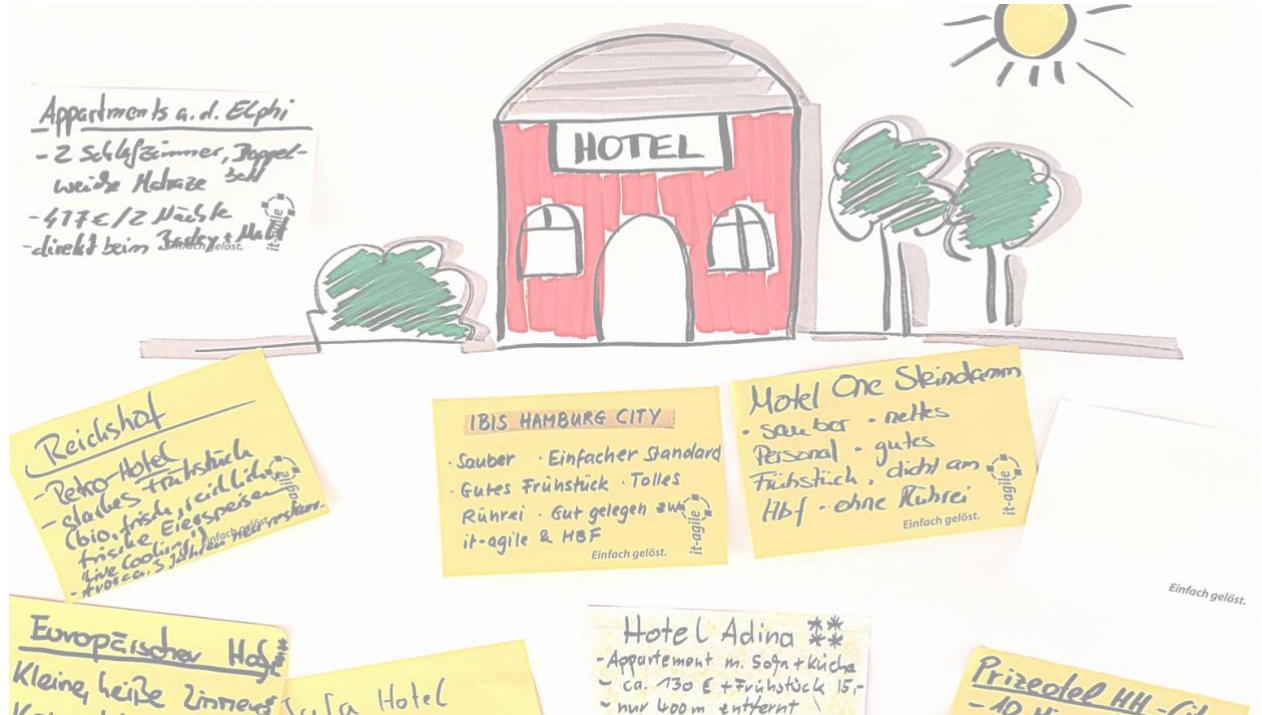 Appartments a.d. Elphi
- 2 Schlafzimmer, Doppel-
weiche Matraze bett
- 417€/2 Nächte
- direkt beim
Einfach gelöst.
it-agile
HOTEL
Reichshof
- Retro-Hotel
- starkes Frühstück
(bio, frisch, reichlich,
frische Eierspeisen
"Live Cooking")
- vor ca. 3 Jahren
it-agile
IBIS HAMBURG CITY
· Sauber · Einfacher Standard
· Gutes Frühstück · Tolles
Rührei · Gut gelegen zw.
it-agile & HBF
Einfach gelöst.
it-agile
Motel One Steindamm
· sauber · nettes
Personal - gutes
Frühstück, dicht am
Hbf - ohne Rührei
Einfach gelöst.
it-agile
Einfach gelöst.
Europäischer Hof
Kleine, heiße Zimmer
Hotel
Hotel Adina ****
- Appartement m. Sofa + Küche
- ca. 130 € + Frühstück 15,-
- nur 400m entfernt
Prizeotel HH-City
- 10